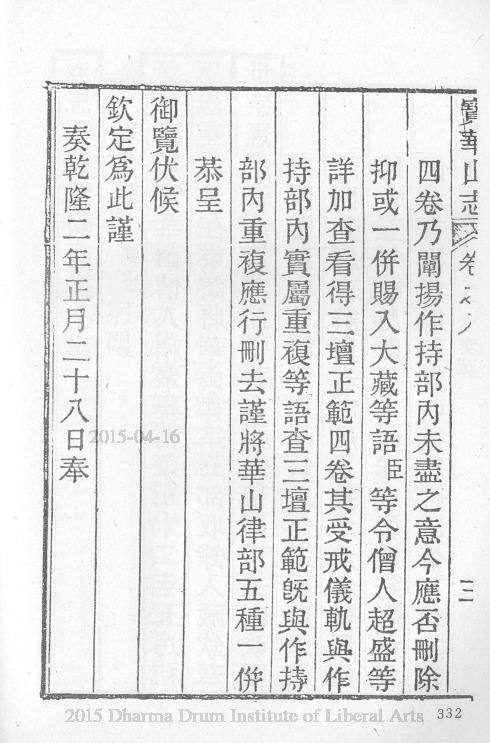 寶華山志 卷之八 三
四卷乃闡揚作持部內未盡之意今應否刪除
抑或一併賜入大藏等語臣等令僧人超盛等
詳加查看得三壇正範四卷其受戒儀軌與作
持部內實屬重複等語查三壇正範旣與作持
部內重複應行刪去謹將華山律部五種一併
恭呈
御覽伏候
欽定爲此謹
奏乾隆二年正月二十八日奉
2015-04-16
2015 Dharma Drum Institute of Liberal Arts 332